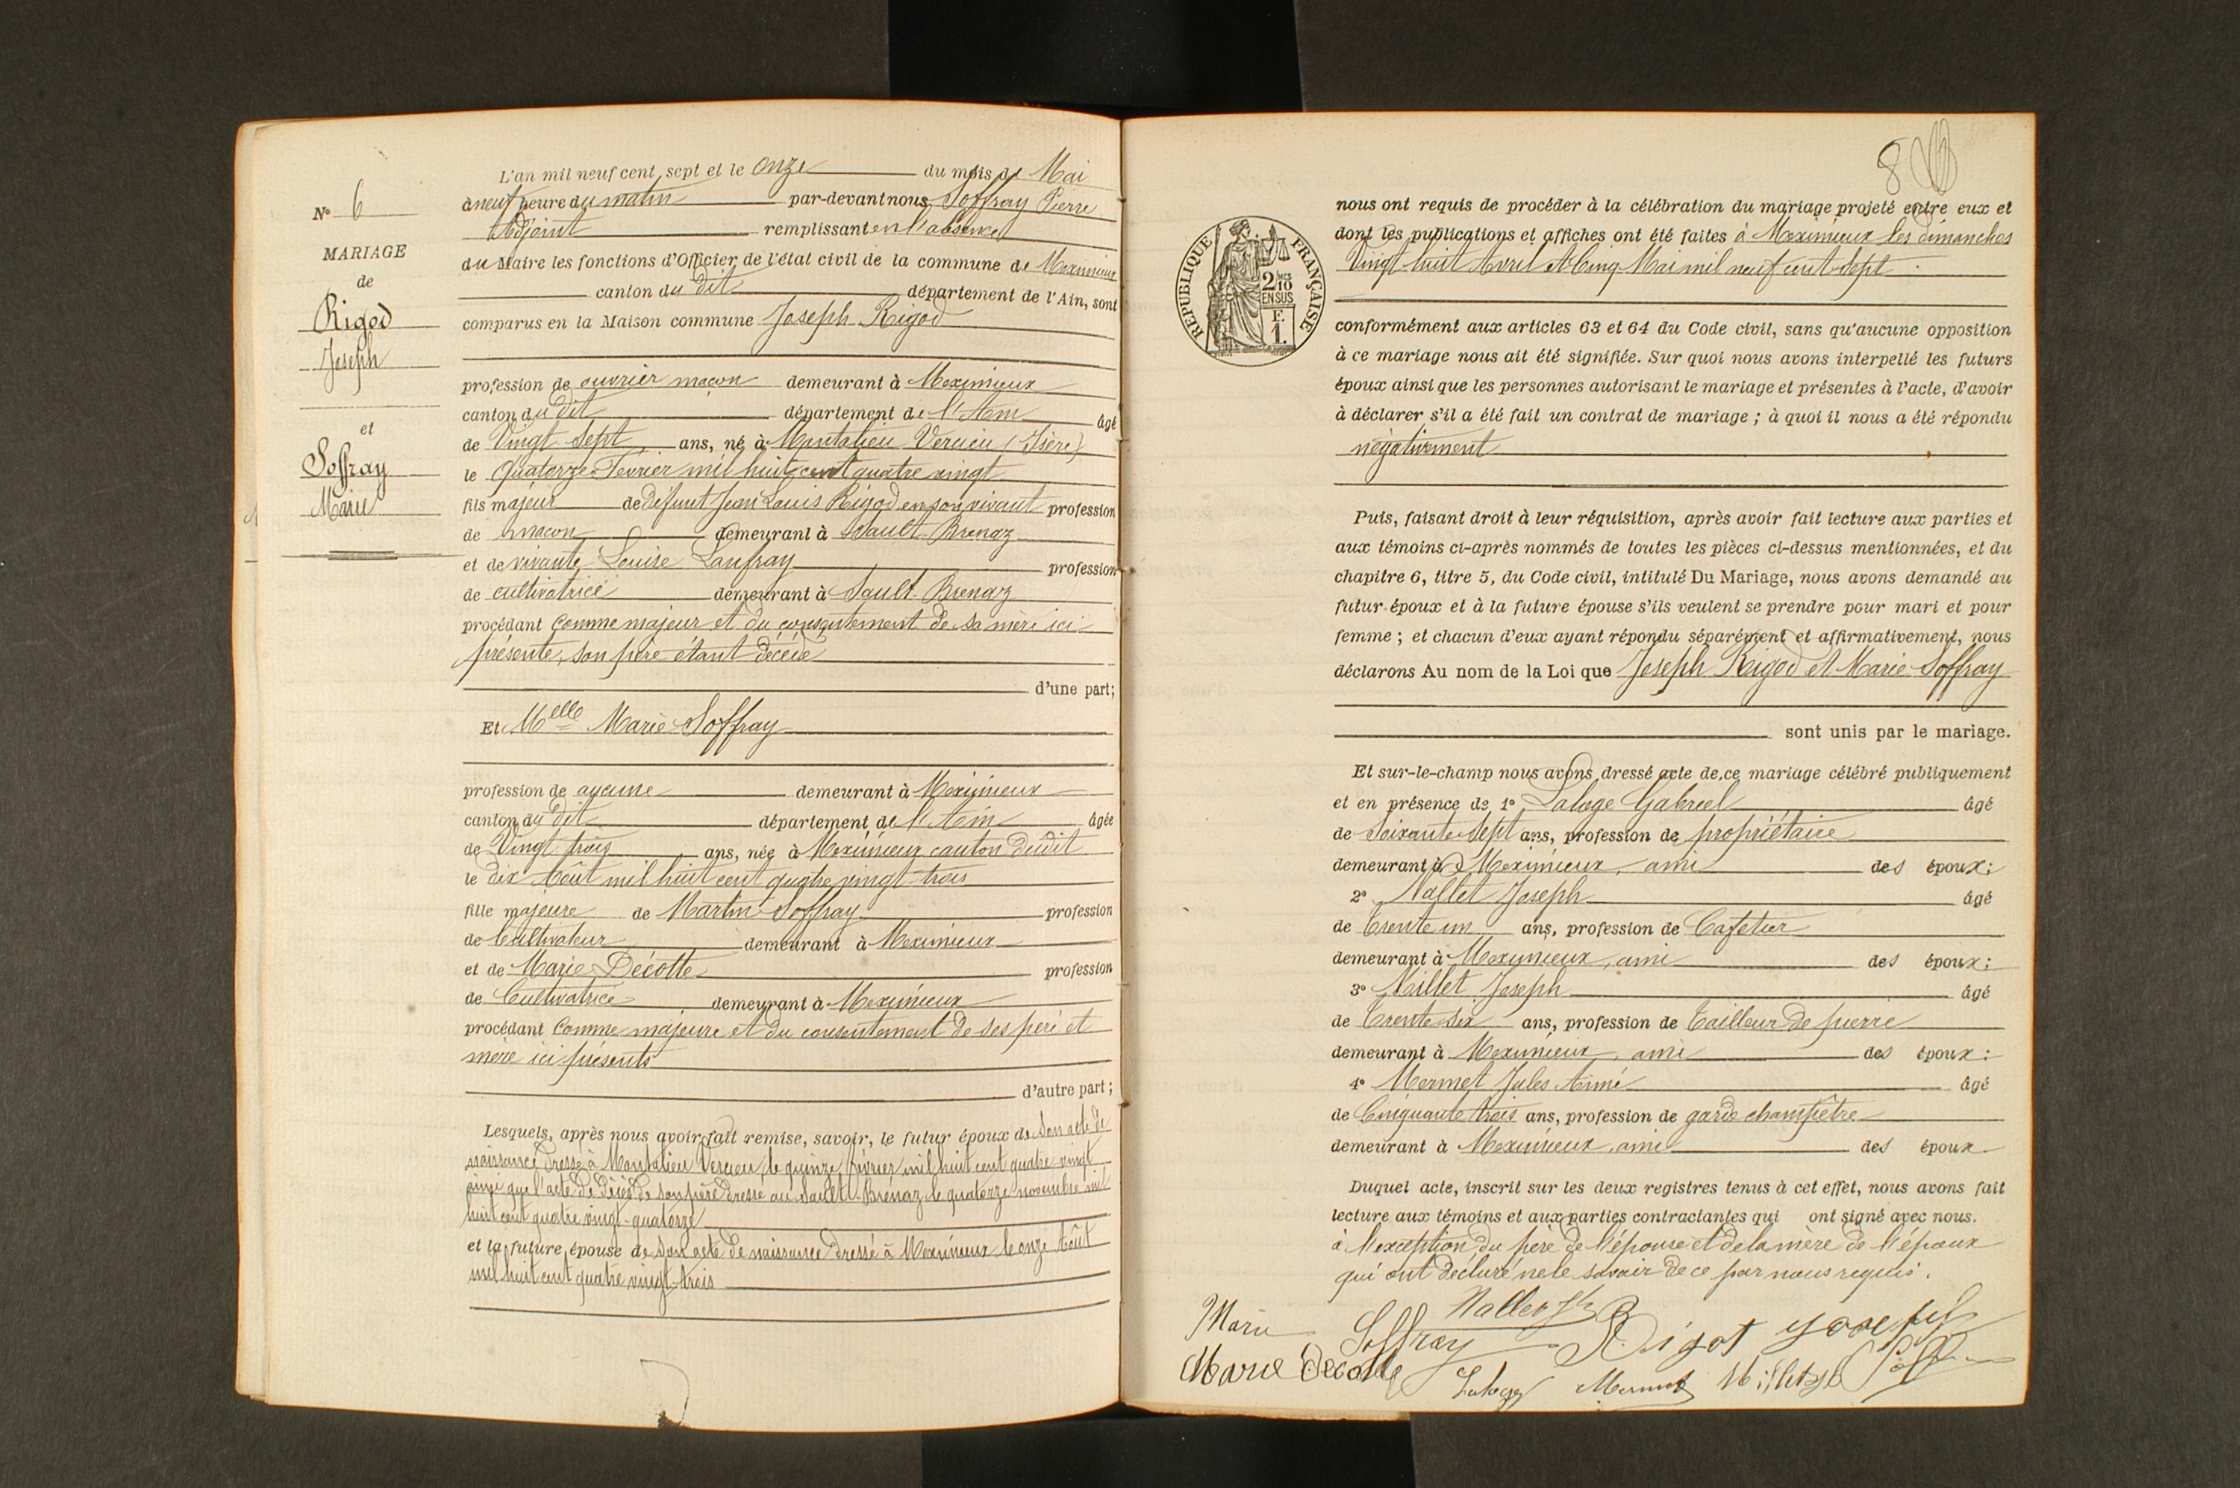 N° 6
MARIAGE
de
Rigod
Joseph
et
Soffray
Marie
L'an mil neuf cent sept et le onze du mois de Mai
à neuf heure du matin par-devant nous, Soffray Pierre
Adjoint remplissant en l'absence
du Maire les fonctions d'Officier de l'état civil de la commune de Meximieux
canton du dit département de l'Ain, sont
comparus en la Maison commune Joseph Rigod
profession de ouvrier maçon demeurant à Meximieux
canton du dit département de l'Ain âgé
de Vingt sept ans, né à Montalieu Vercieu (Isère)
le quatorze Février mil huit cent quatre vingt
fils majeur de défunt Jean Louis Rigod en son vivant profession
de maçon demeurant à Sault-Brenaz
et de vivante Louise Lanfray profession
de cultivatrice demeurant à Sault-Brenaz
procédant comme majeur et du consentement de sa mère ici
présente, son père étant décédé
d'une part;
Et Melle Marie Soffray
profession de aucune demeurant à Meximieux
canton du dit département de l'Ain âgée
de Vingt trois ans, née à Meximieux canton dudit
le dix Août mil huit cent quatre vingt trois
fille majeure de Martin Soffray profession
de Cultivateur demeurant à Meximieux
et de Marie Décotte profession
de Cultivatrice demeurant à Meximieux
procédant Comme majeure et du consentement de ses père et
mère ici présents
d'autre part;
Lesquels, après nous avoir fait remise, savoir, le futur époux de Son acte de
naissance dressé à Montalieu Vercieu, le quinze février mil huit cent quatre vingt
ainsi que l'acte de décès de son père dressé au Sault-Brénaz le quatorze novembre mil
huit cent quatre vingt-quatorze
et la future épouse de Son acte de naissance dressé à Meximieux le onze Août
mil huit cent quatre vingt-trois
8
RÉPUBLIQUE FRANÇAISE
2/10
EN SUS
F.
1.
nous ont requis de procéder à la célébration du mariage projeté entre eux et
dont les publications et affiches ont été faites à Meximieux les dimanches
Vingt huit Avril et Cinq Mai mil neuf cent sept
conformément aux articles 63 et 64 du Code civil, sans qu'aucune opposition
à ce mariage nous ait été signifiée. Sur quoi nous avons interpellé les futurs
époux ainsi que les personnes autorisant le mariage et présentes à l'acte, d'avoir
à déclarer s'il a été fait un contrat de mariage; à quoi il nous a été répondu
négativement
Puis, faisant droit à leur réquisition, après avoir fait lecture aux parties et
aux témoins ci-après nommés de toutes les pièces ci-dessus mentionnées, et du
chapitre 6, titre 5, du Code civil, intitulé Du Mariage, nous avons demandé au
futur époux et à la future épouse s'ils veulent se prendre pour mari et pour
femme; et chacun d'eux ayant répondu séparément et affirmativement, nous
déclarons Au nom de la Loi que Joseph Rigod et Marie Soffray
sont unis par le mariage.
Et sur-le-champ nous avons dressé acte de ce mariage célébré publiquement
et en présence de 1° Laloge Gabriel âgé
de Soixante sept ans, profession de propriétaire
demeurant à Meximieux, ami des époux;
2° Nallet Joseph âgé
de Trente un ans, profession de Cafetier
demeurant à Meximieux, ami des époux;
3° Millet Joseph âgé
de Trente six ans, profession de Tailleur de pierre
demeurant à Meximieux, ami des époux;
4° Mermet Jules Aimé âgé
de Cinquante trois ans, profession de garde champêtre
demeurant à Meximieux, ami des époux
Duquel acte, inscrit sur les deux registres tenus à cet effet, nous avons fait
lecture aux témoins et aux parties contractantes qui ont signé avec nous.
à l'exception du père de l'épouse et de la mère de l'époux
qui ont déclaré ne le savoir de ce par nous requis.
Marie Soffray Nallet Jh Rigot
Marie Decotte Laloge Mermet Millet